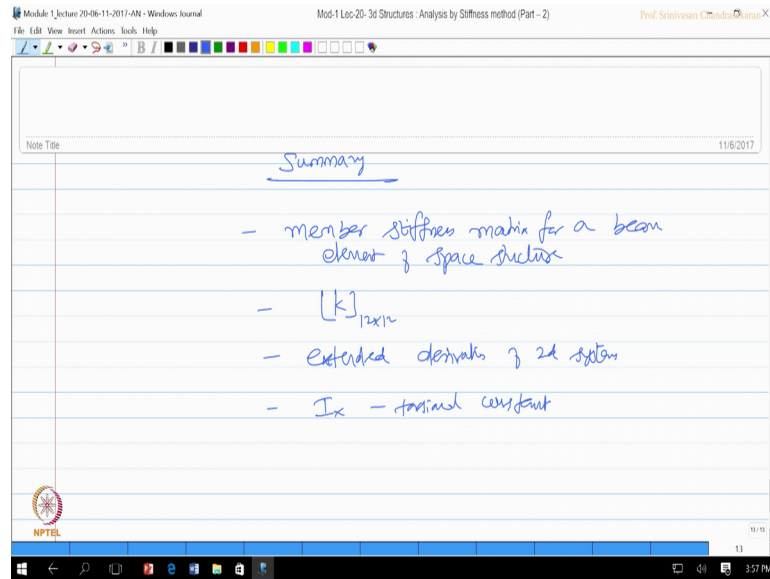 Module 1_lecture 20-06-11-2017-AN - Windows Journal
Mod-1 Lec-20- 3d Structures : Analysis by Stiffness method (Part – 2)
Prof. Srinivasan Chandrasekaran
File Edit View Insert Actions Tools Help
Note Title
11/6/2017
Summary
- member stiffness matrix for a beam
element of space structure
- [k]12x12
- extended derivatn of 2d system
- Ix - torsional constant
NPTEL
13 / 13
13
3:57 PM